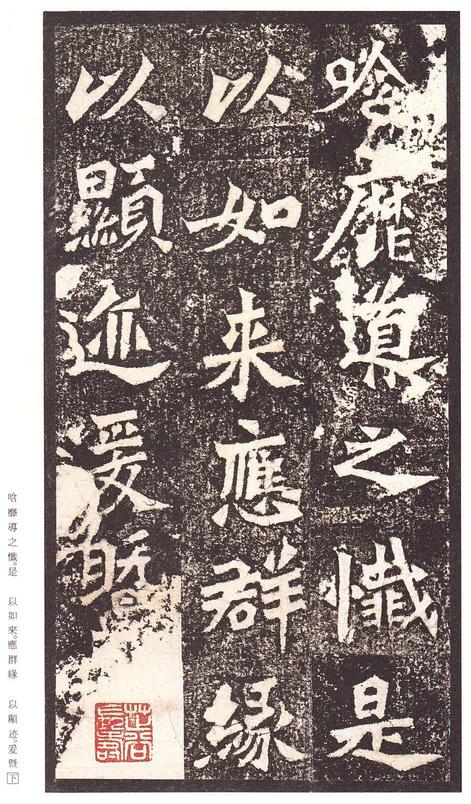 唅靡導之懺是
以如来應群緣
以顯迹爰暨
唅靡導之懺。是　以如來。應群緣　以顯迹。爰暨下